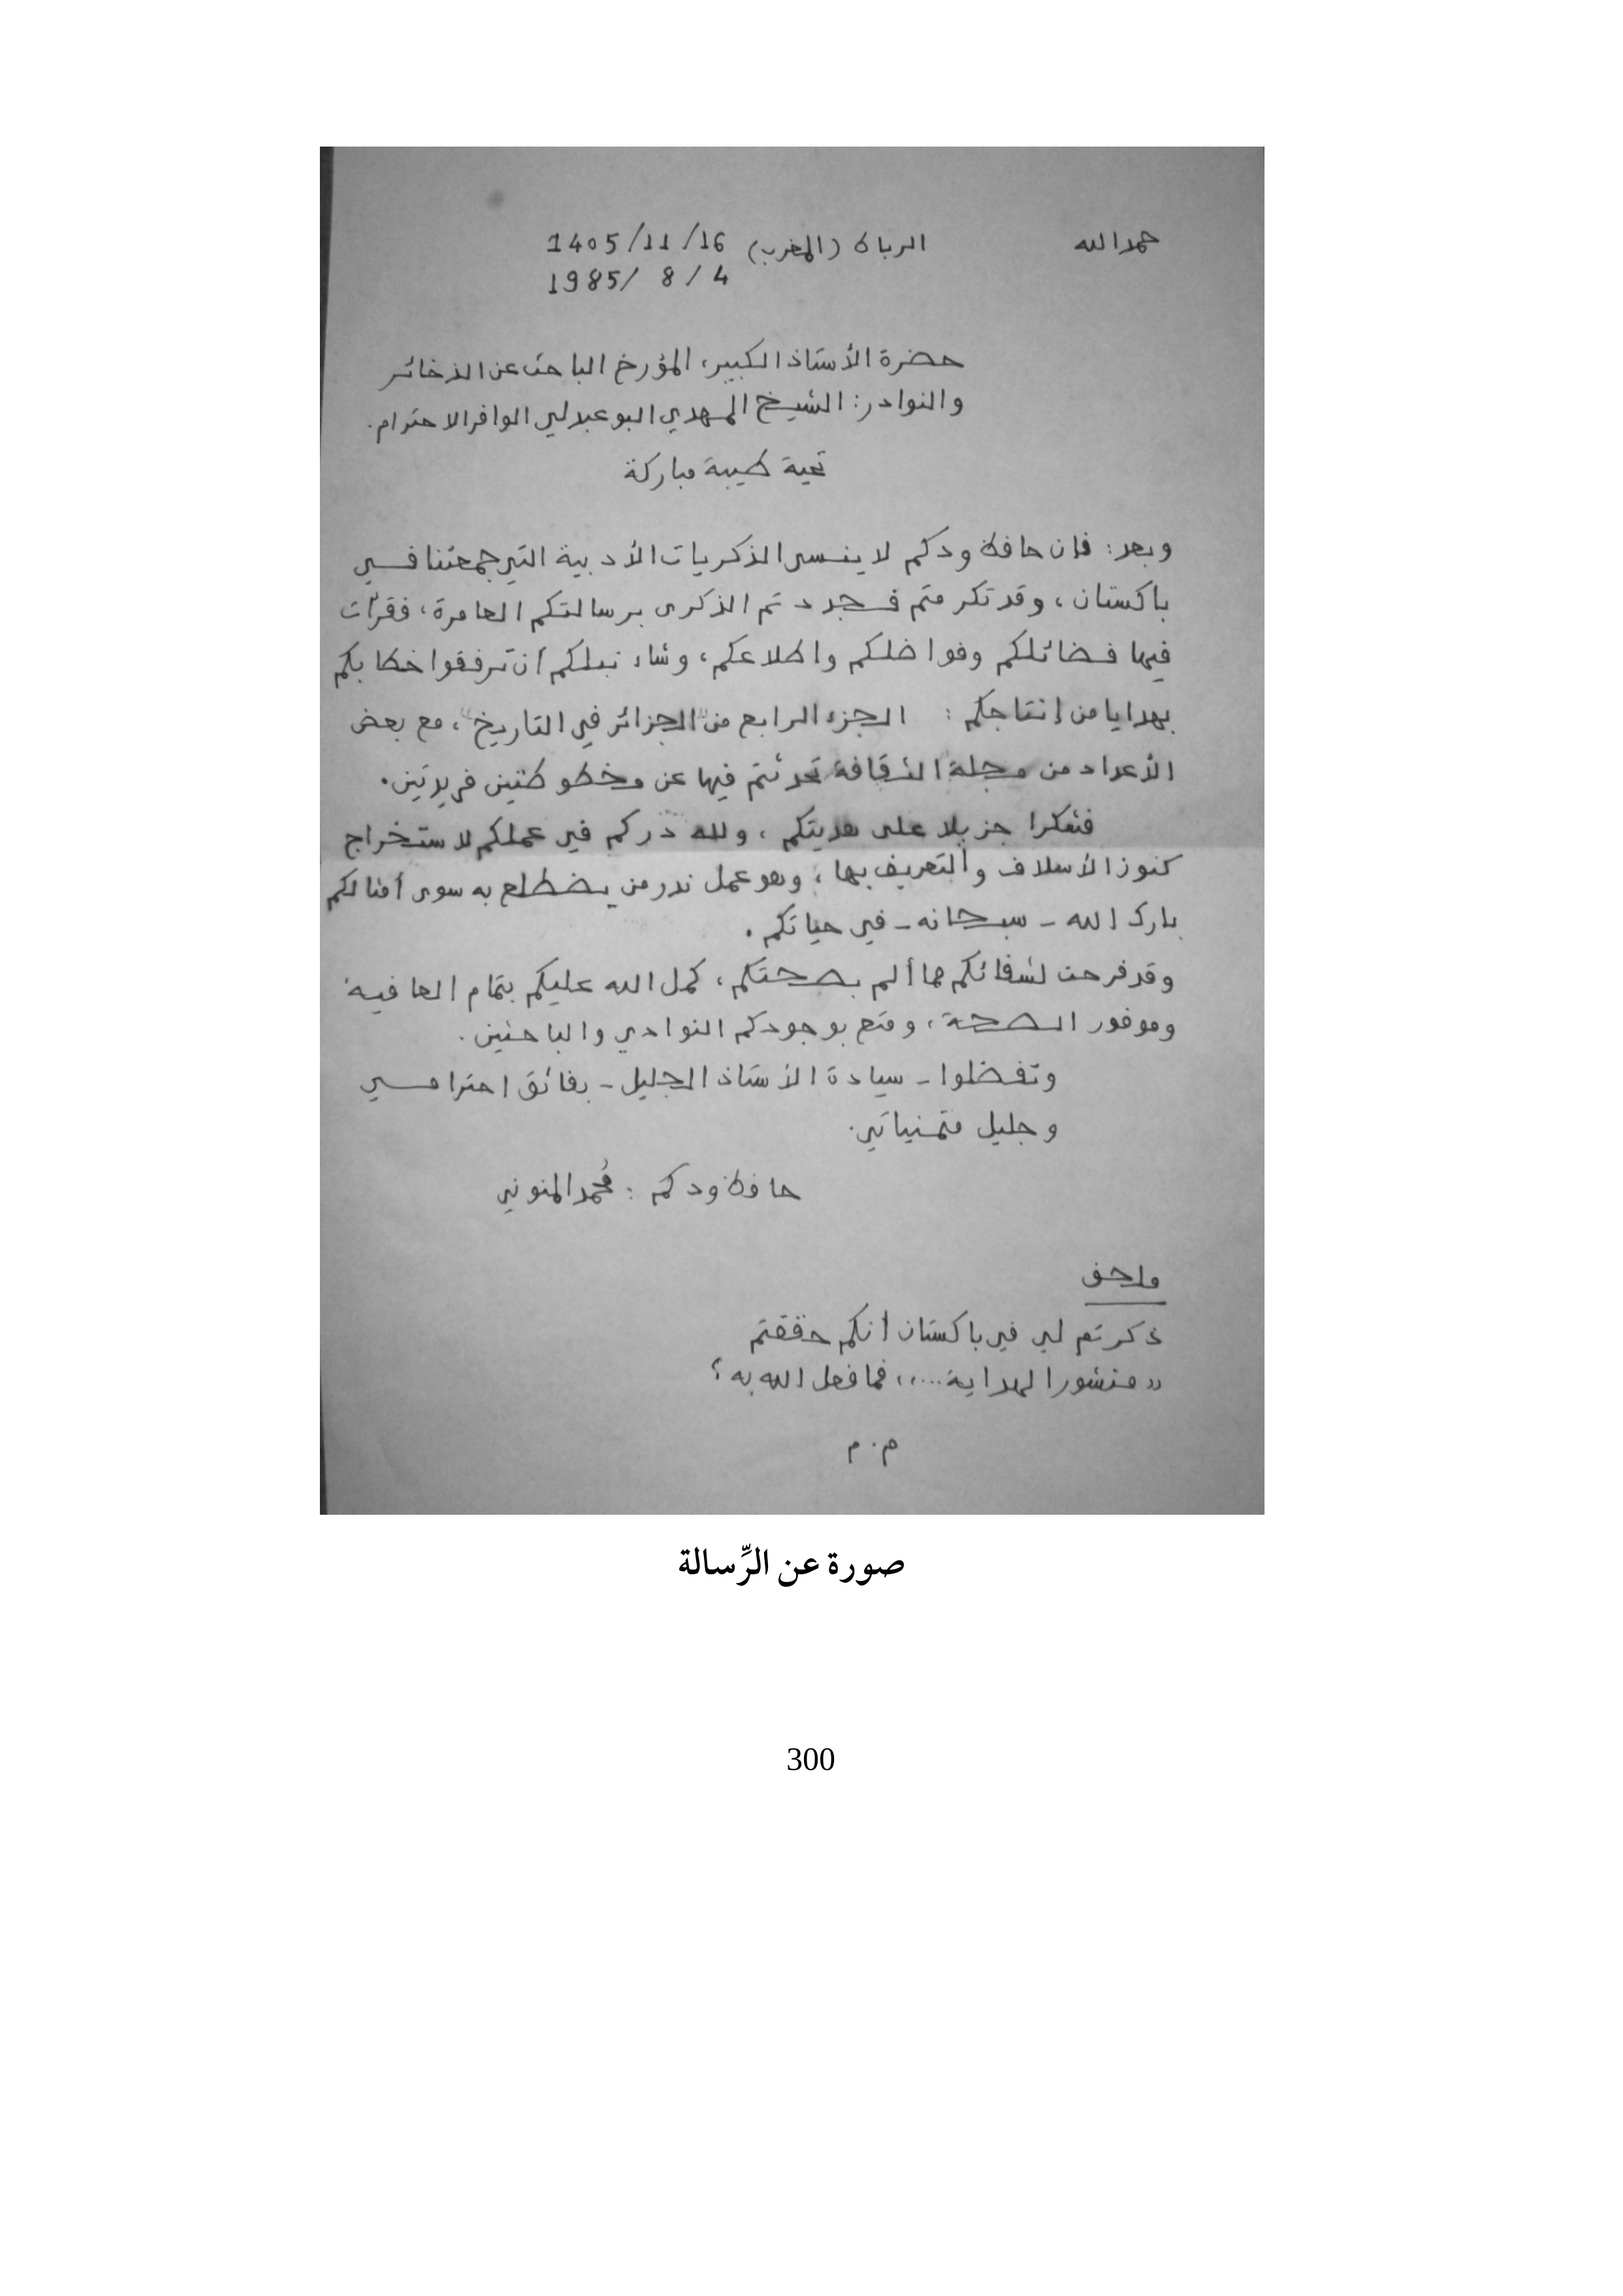 حمدا لله
الرباط (المغرب) 1405/11/16
1985/ 8 / 4
حضرة الأستاذ الكبير، المؤرخ الباحث عن الذخائر
والنوادر: الشيخ المهدي البوعبدلي الوافر الاحترام.
تحية طيبة مباركة
وبعد: فإن حافظ ودكم لا ينسى الذكريات الأدبية التي جمعتنا في
باكستان، وقد تكرمتم فجددتم الذكرى برسالتكم العامرة، فقرأت
فيها فضائلكم وفواضلكم واطلاعكم، وشاء نبلكم أن ترفقوا خطابكم
بهدايا من إنتاجكم: الجزء الرابع من "الجزائر في التاريخ"، مع بعض
الأعداد من مجلة "الثقافة" تحدثتم فيها عن مخطوطتين فريدتين.
فشكرا جزيلا على هديتكم، ولله دركم في عملكم لاستخراج
كنوز الأسلاف والتعريف بها، وهو عمل ندر من يضطلع به سوى أمثالكم
بارك الله - سبحانه - في حياتكم.
وقد فرحت لشفائكم مما ألم بصحتكم، كمل الله عليكم بتمام العافية
وموفور الصحة، ومتع بوجودكم النوادي والباحثين.
وتفضلوا - سيادة الأستاذ الجليل - بفائق احترامي
وجليل متمنياتي.
حافظ ودكم: مُحمد المنوني
ملحق
ذكرتم لي في باكستان أنكم حققتم
"منشور الهداية...."، فما فعل الله به؟
م. م
صورة عن الرِّسالة
300